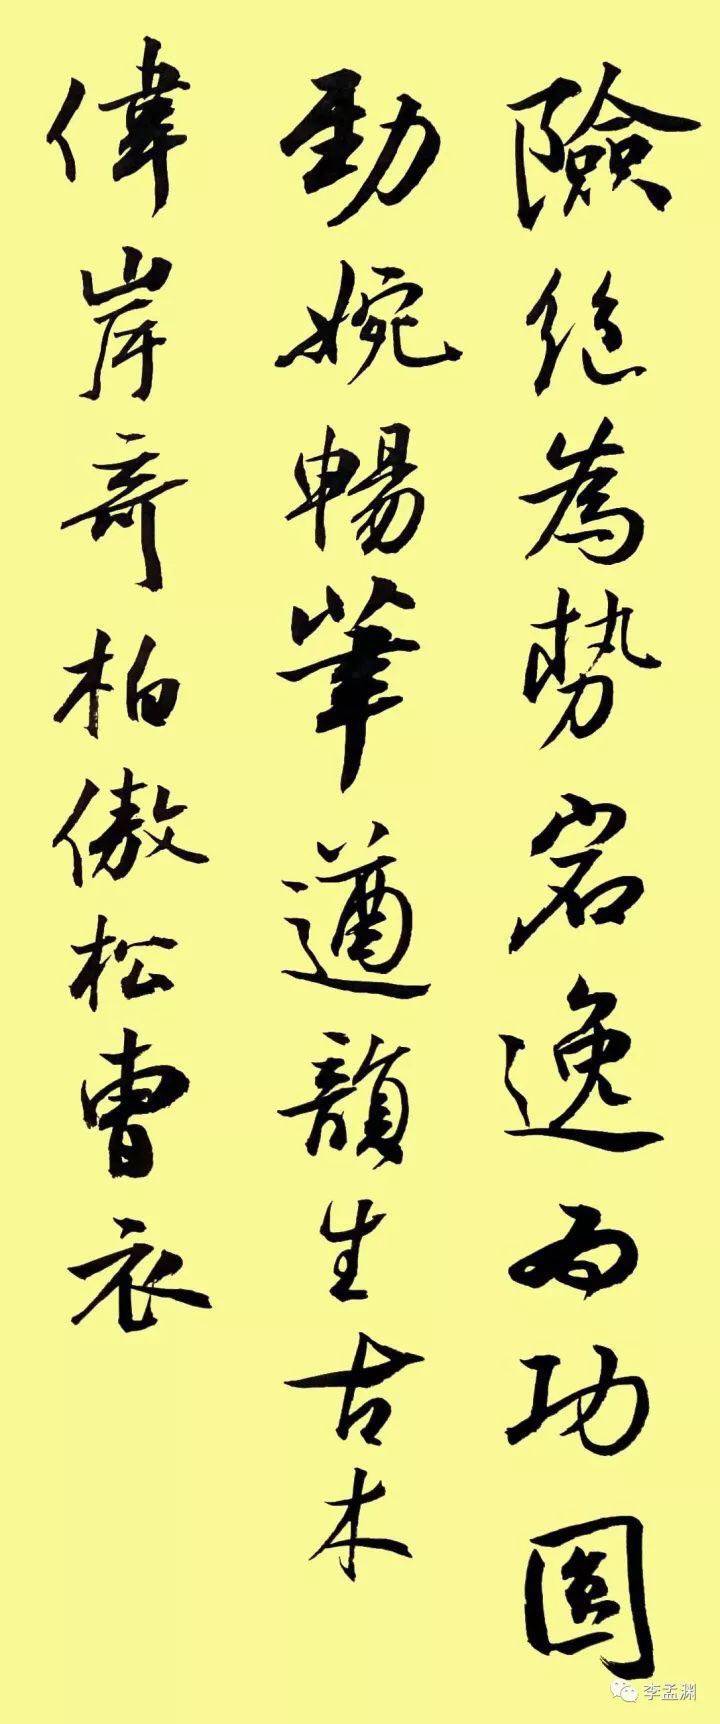 險絕為勢宕逸為功圓
勁婉暢筆遒韻生古木
偉岸奇柏傲松曹衣
李孟渊